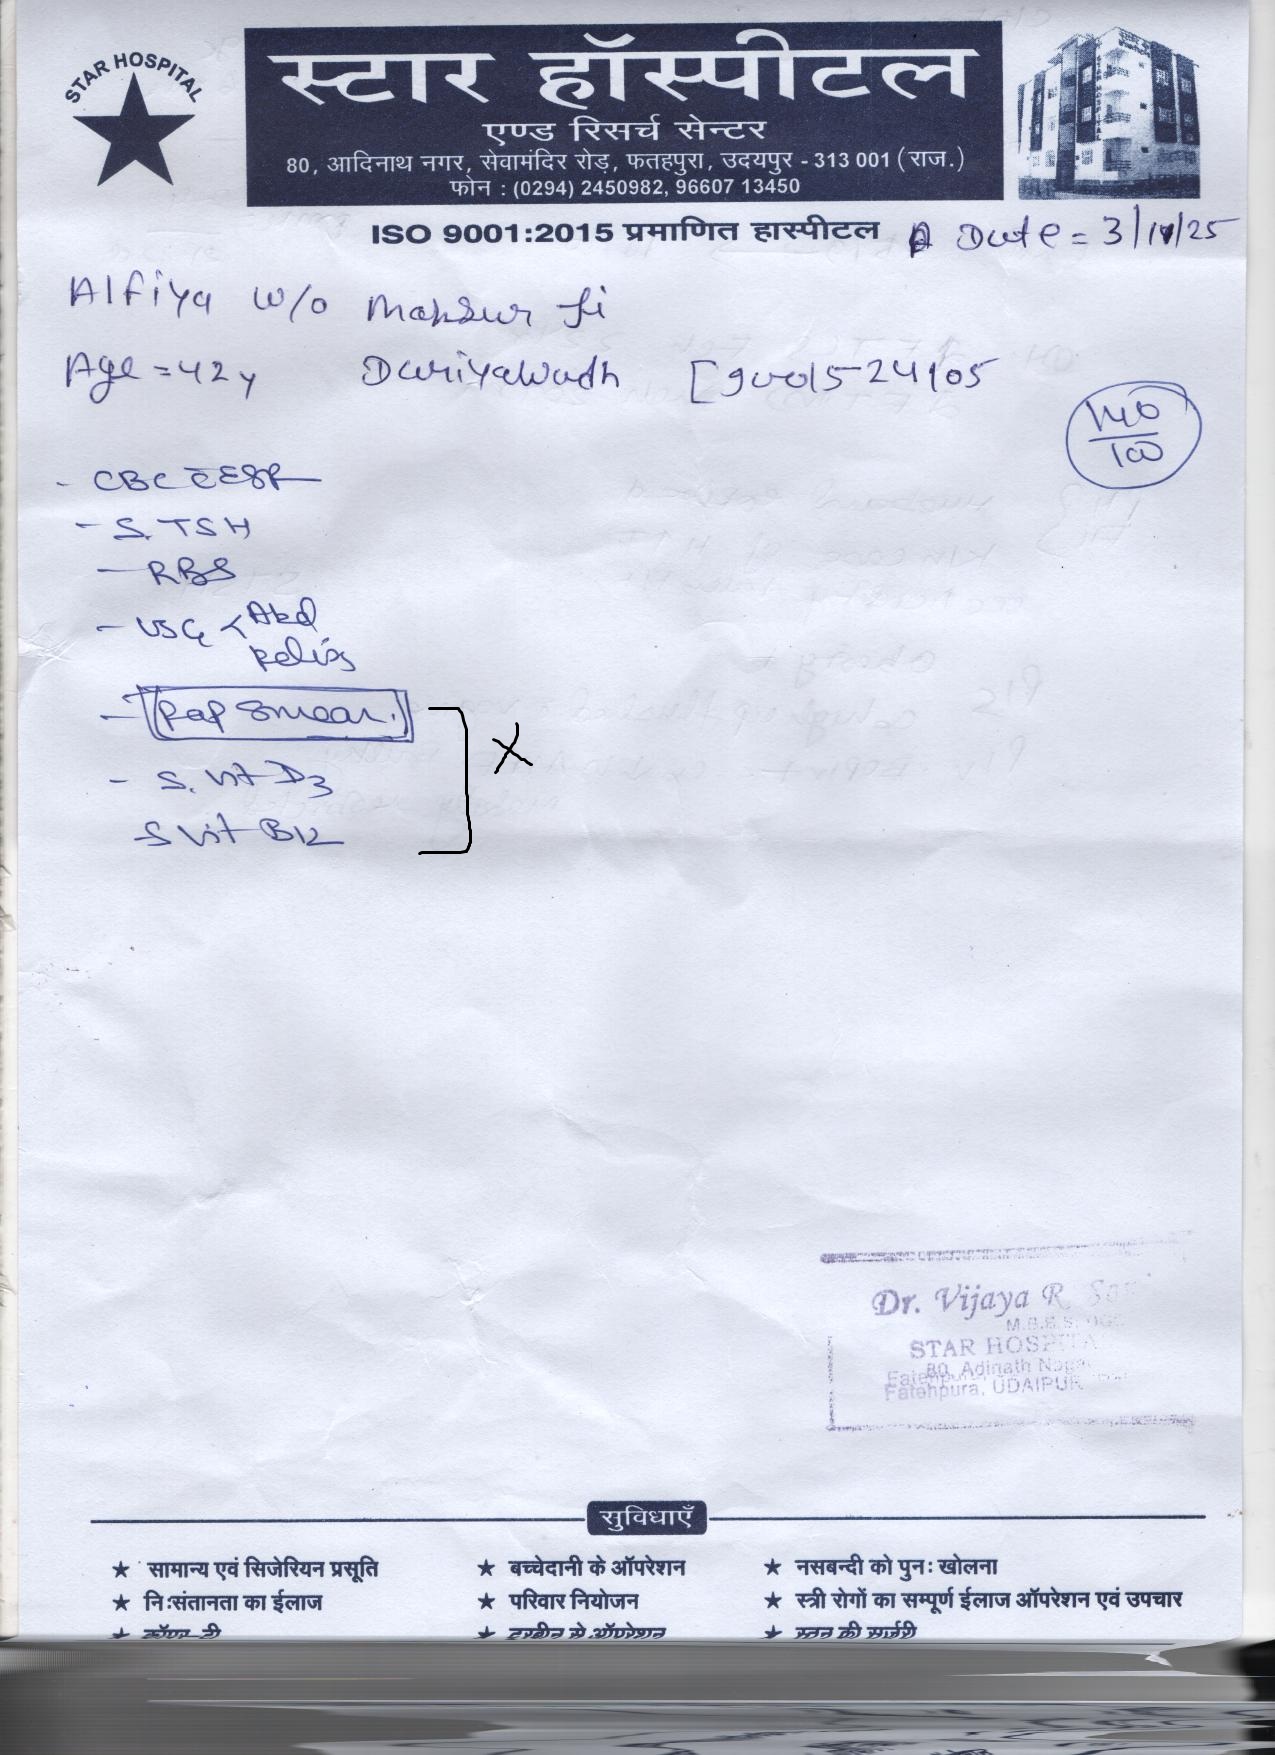 STAR HOSPITAL
स्टार हॉस्पीटल
एण्ड रिसर्च सेन्टर
80, आदिनाथ नगर, सेवामंदिर रोड़, फतहपुरा, उदयपुर - 313 001 (राज.)
फोन : (0294) 2450982, 96607 13450
ISO 9001:2015 प्रमाणित हास्पीटल
Date = 3/11/25
Alfiya w/o Mansur ji
Age = 42y Dariyawadh [9001524105
140/100
- CBC c̄ ESR
- S. TSH
- RBS
- USG < Abd
Pelvis
- Pap Smear.
X
- S. Vit D3
S Vit B12
Dr. Vijaya R.
M.B.B.S.
STAR HOSPITA
80, Adinath Naga
Fatehpura, UDAIPUR
सुविधाएँ
★ सामान्य एवं सिजेरियन प्रसूति ★ बच्चेदानी के ऑपरेशन ★ नसबन्दी को पुनः खोलना
★ निःसंतानता का ईलाज ★ परिवार नियोजन ★ स्त्री रोगों का सम्पूर्ण ईलाज ऑपरेशन एवं उपचार
★ कॉपर-टी ★ दूरबीन से ऑपरेशन ★ स्तन की सर्जरी